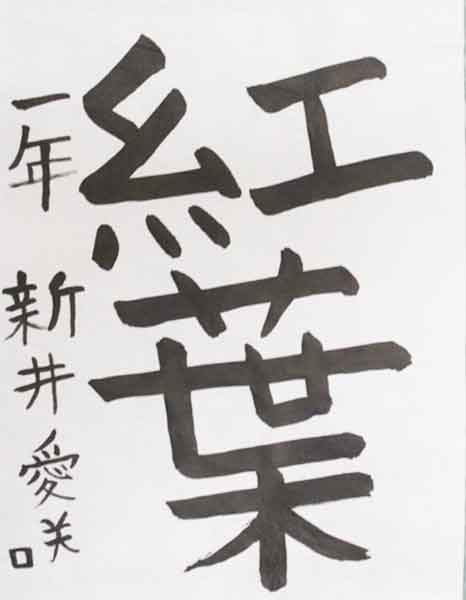 紅葉
一年 新井愛咲